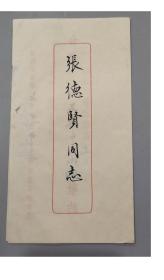 張德賢同志